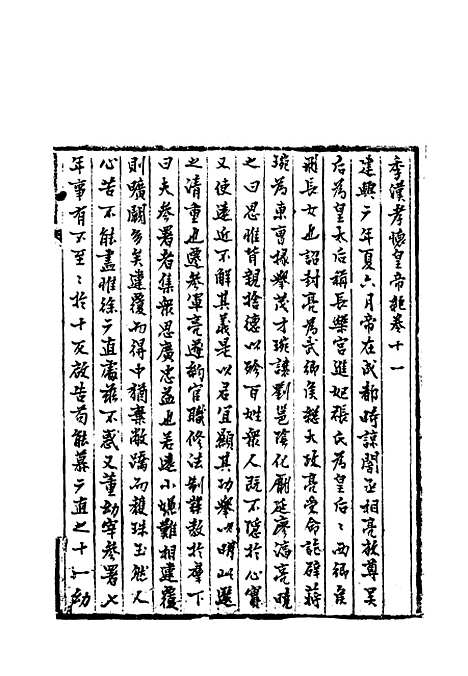 季漢孝懷皇帝紀卷十一
建興元年夏六月帝在成都時諒闇丞相亮啟尊吳
后為皇太后稱長樂宮進妃張氏為皇后〻西鄉侯
飛長女也詔封亮為武鄉侯總大政亮受命詭辟蔣
琬為東曹掾舉茂才琬讓劉邕陰化龐延廖湻亮曉
之曰思惟背親捨德以殄百姓衆人既不隱於心實
又使遠近不解其義是以君宜顯其功舉以明此選
之清重也遷參軍亮遂約官職修法制發教於羣下
曰夫參署者集衆思廣忠益也若遠小嫌難相違覆
則曠闕多矣違覆而得中猶棄敝蹻而獲珠玉然人
心苦不能盡惟徐元直處茲不惑又董幼宰參署七
年事有不至〻於十反啟告苟能慕元直之十一幼